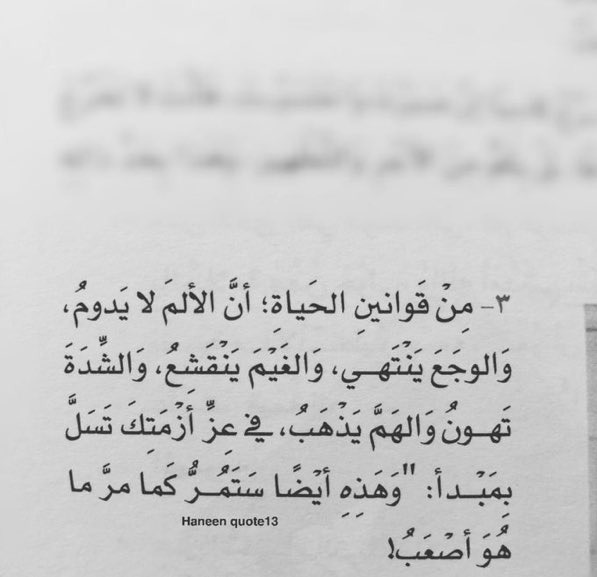 ٣- مِنْ قَوانينِ الحَياةِ؛ أنَّ الألمَ لا يَدومُ،
وَالوجَعَ يَنْتَهـي، وَالغَيْمَ يَنْقَشِعُ، وَالشِّدَةَ
تَهـونُ وَالهَمَّ يَذْهَبُ، في عِزِّ أزْمَتِكَ تَسَلَّ
بِمَبْـدأ: "وَهَذِهِ أيْضًا سَتَمُـرُّ كَما مرَّ ما
Haneen quote13
هُوَ أصْعَبُ!